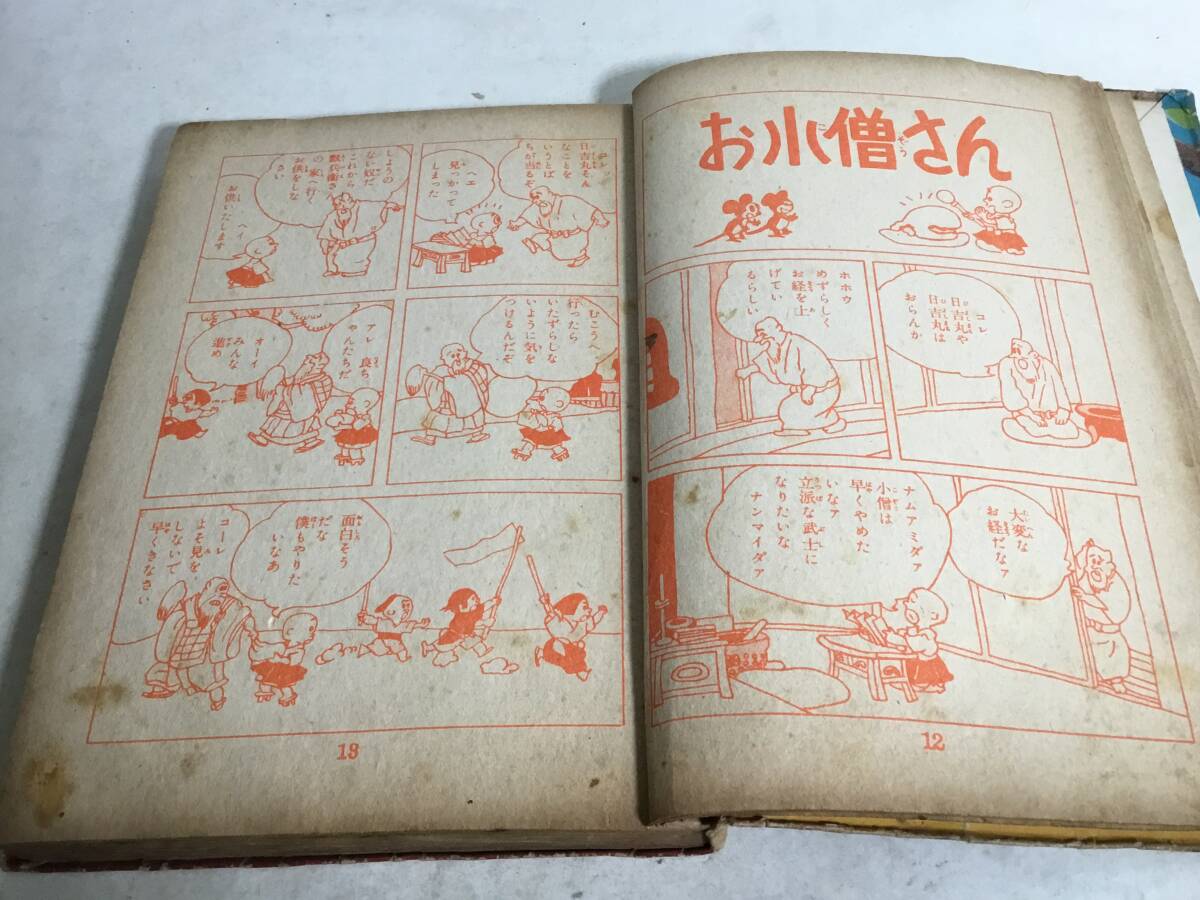 お小僧さん
コレ
日吉丸や
日吉丸は
おらんか
ホホウ
めずらしく
お経を上
げてい
るらしい
大変な
お経だなァ
ナムアミダァ
小僧は
早くやめた
いなァ
立派な武士に
なりたいな
ナンマイダァ
12
コレッ
日吉丸そん
なことを
いうとば
ちが当るぞ
ヘエ
見つかって
しまった
しようの
ない奴だ
これから
兵衛さ
の家へ行く
お供をしな
さい
ヘイ
お供いたします
むこうへ
行ったら
いたずらしな
いように気を
つけるんだぞ
アレ 良ち
ゃんたちだ
オーイ
みんな
進め
面白そう
だな
僕もやりた
いなあ
コーレ
よそ見を
しないで
早くきなさい
13